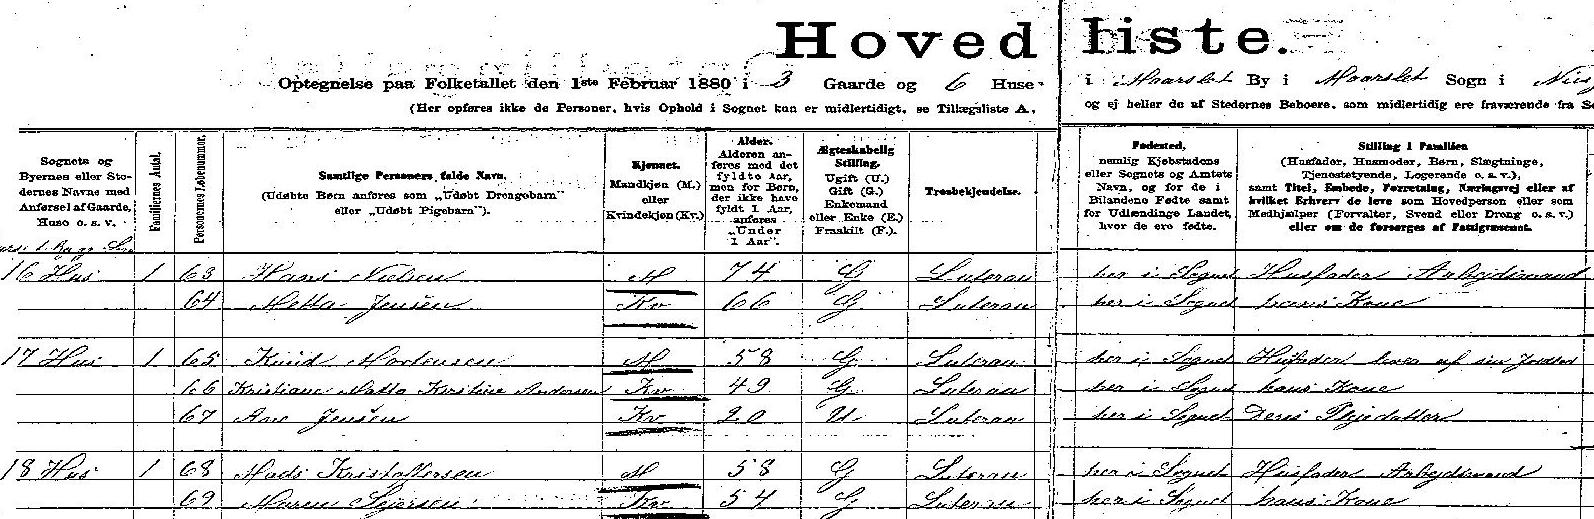 Hoved liste.
Optegnelse paa Folketallet den 1ste Februar 1880 i 3 Gaarde og 6 Huse i Maarslet By i Maarslet Sogn i
(Her opføres ikke de Personer, hvis Ophold i Sognet kun er midlertidigt, se Tillægsliste A, og ej heller de af Stedernes Beboere, som midlertidig ere fraværende fra
Sognets og Byernes eller Stedernes Navne med Anførsel af Gaarde, Huse o. s. v.
Familiernes Antal.
Personernes Løbenummer.
Samtlige Personers fulde Navn.
(Udøbte Børn anføres som „Udøbt Drengebarn" eller „Udøbt Pigebarn").
Kjønnet.
Mandkjøn (M.) eller Kvindekjøn (Kv.)
Alder.
Alderen anføres med det fyldte Aar, men for Børn, der ikke have fyldt 1 Aar, anføres „Under 1 Aar".
Ægteskabelig Stilling.
Ugift (U.) Gift (G.) Enkemand eller Enke (E.) Fraskilt (F.).
Trosbekjendelse.
Fødested,
nemlig Kjøbstadens eller Sognets og Amtets Navn, og for de i Bilandene Fødte samt for Udlændinge Landet, hvor de ere fødte.
Stilling i Familien
(Husfader, Husmoder, Børn, Slægtninge, Tjenestetyende, Logerende o. s. v.), samt Titel, Embede, Forretning, Næringsvej eller af hvilket Erhverv de leve som Hovedperson eller som Medhjælper (Forvalter, Svend eller Dreng o. s. v.) eller om de forsørges af Fattigvæsenet.
16 Hus 1 63 Hans Nielsen M 74 G Luteran her i Sognet Husfader Arbejdsmand
64 Mette Jensen Kv 66 G Luteran her i Sognet hans Kone
17 Hus 1 65 Knud Mortensen M 58 G Luteran her i Sognet Husfader lever af sin Jordlod
66 Kristiane Mette Kirstine Andersen Kv 49 G Luteran her i Sognet hans Kone
67 Ane Jensen Kv 20 U Luteran her i Sognet Deres Plejedatter
18 Hus 1 68 Mads Kristoffersen M 58 G Luteran her i Sognet Husfader Arbejdsmand
69 Maren Sejersen Kv 54 G Luteran her i Sognet hans Kone